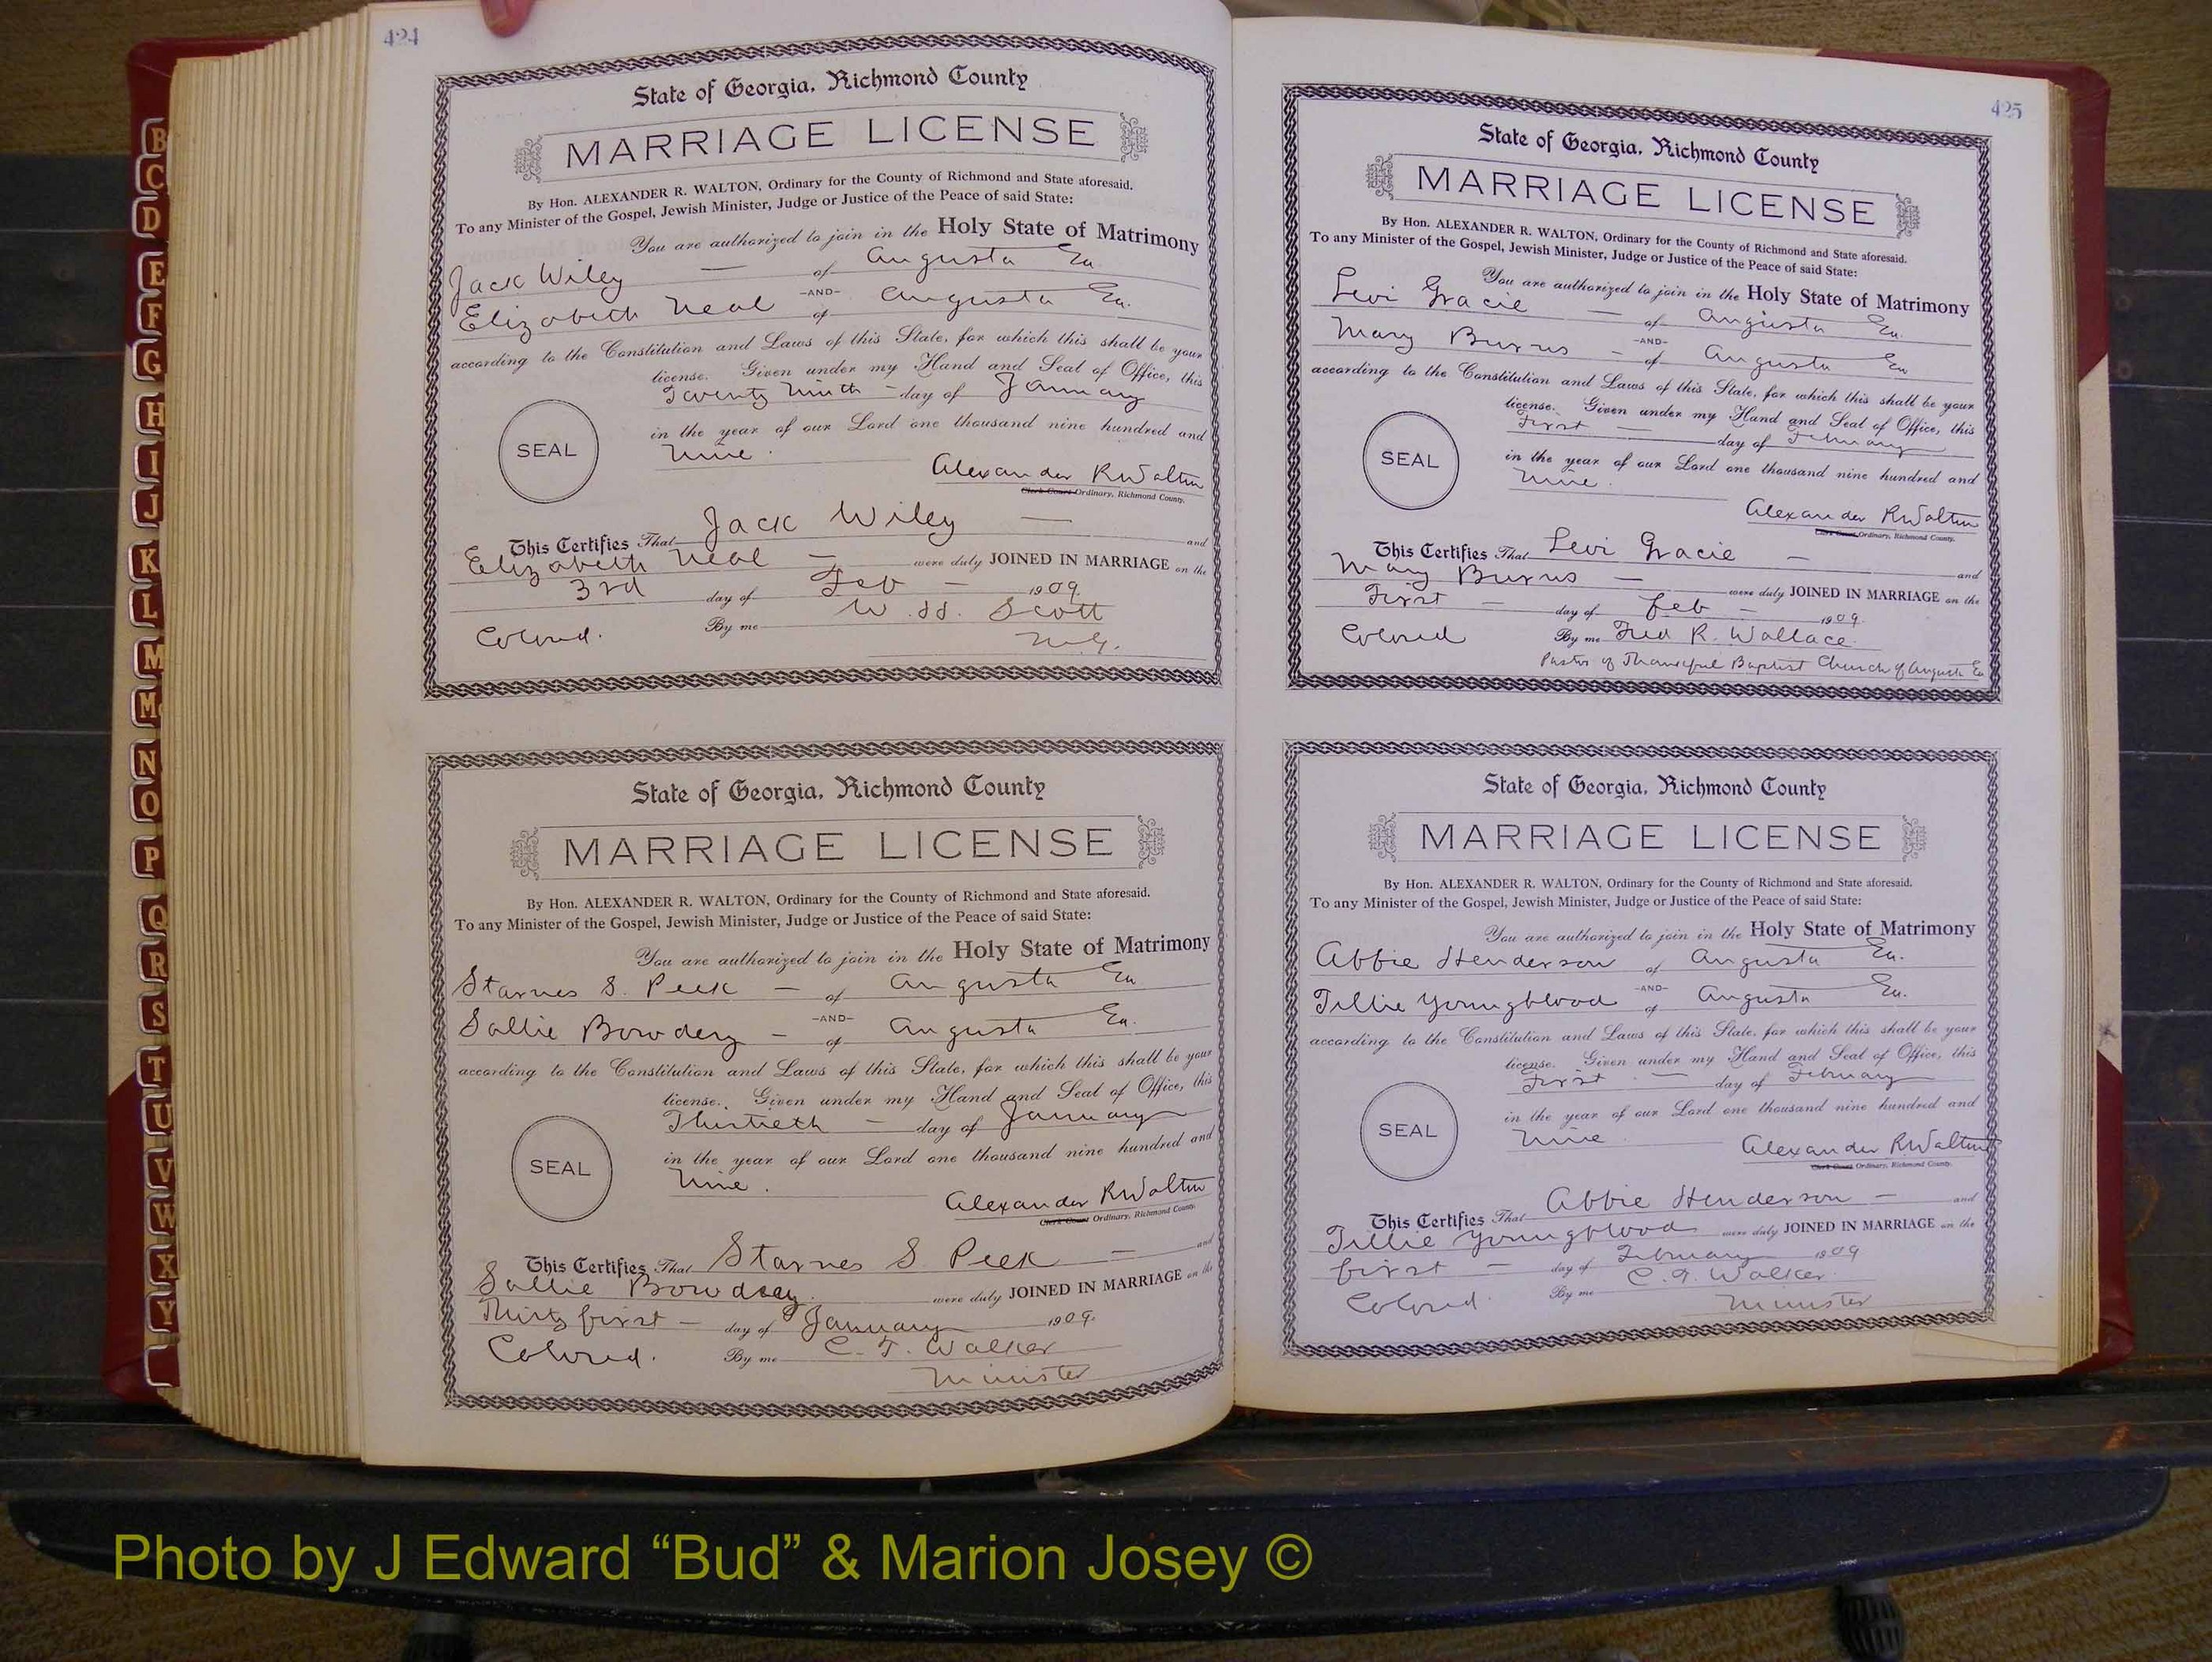 424
State of Georgia, Richmond County
MARRIAGE LICENSE
By Hon. ALEXANDER R. WALTON, Ordinary for the County of Richmond and State aforesaid.
To any Minister of the Gospel, Jewish Minister, Judge or Justice of the Peace of said State:
You are authorized to join in the Holy State of Matrimony
Jack Wiley — of Augusta Ga
-AND-
Elizabeth Neal of Augusta Ga.
according to the Constitution and Laws of this State, for which this shall be your
license. Given under my Hand and Seal of Office, this
Twenty Ninth - day of January
in the year of our Lord one thousand nine hundred and
Nine.
SEAL
Alexander R Walton
Clerk Court Ordinary, Richmond County.
This Certifies That Jack Wiley — and
Elizabeth Neal — were duly JOINED IN MARRIAGE on the
3rd day of Feb — 1909.
Colored. By me W. H. Scott
M.G.
State of Georgia, Richmond County
MARRIAGE LICENSE
By Hon. ALEXANDER R. WALTON, Ordinary for the County of Richmond and State aforesaid.
To any Minister of the Gospel, Jewish Minister, Judge or Justice of the Peace of said State:
You are authorized to join in the Holy State of Matrimony
Starnes S. Peek — of Augusta Ga
-AND-
Sallie Bowdery — of Augusta Ga.
according to the Constitution and Laws of this State, for which this shall be your
license. Given under my Hand and Seal of Office, this
Thirtieth — day of January
in the year of our Lord one thousand nine hundred and
Nine.
SEAL
Alexander R Walton
Clerk Court Ordinary, Richmond County.
This Certifies That Starnes S. Peek — and
Sallie Bowdrey. were duly JOINED IN MARRIAGE on the
Thirty first — day of January 1909.
Colored. By me C. T. Walker
Minister
425
State of Georgia, Richmond County
MARRIAGE LICENSE
By Hon. ALEXANDER R. WALTON, Ordinary for the County of Richmond and State aforesaid.
To any Minister of the Gospel, Jewish Minister, Judge or Justice of the Peace of said State:
You are authorized to join in the Holy State of Matrimony
Levi Gracie — of Augusta Ga.
-AND-
Mary Burrus — of Augusta Ga
according to the Constitution and Laws of this State, for which this shall be your
license. Given under my Hand and Seal of Office, this
First — day of February
in the year of our Lord one thousand nine hundred and
Nine.
SEAL
Alexander R Walton
Clerk Court Ordinary, Richmond County.
This Certifies That Levi Gracie — and
Mary Burrus — were duly JOINED IN MARRIAGE on the
First — day of Feb — 1909.
Colored By me Fred R. Wallace.
Pastor of Thankful Baptist Church of Augusta Ga
State of Georgia, Richmond County
MARRIAGE LICENSE
By Hon. ALEXANDER R. WALTON, Ordinary for the County of Richmond and State aforesaid.
To any Minister of the Gospel, Jewish Minister, Judge or Justice of the Peace of said State:
You are authorized to join in the Holy State of Matrimony
Abbie Henderson of Augusta Ga.
-AND-
Tillie Youngblood of Augusta Ga.
according to the Constitution and Laws of this State, for which this shall be your
license. Given under my Hand and Seal of Office, this
First — day of February
in the year of our Lord one thousand nine hundred and
Nine.
SEAL
Alexander R Walton
Clerk Court Ordinary, Richmond County.
This Certifies That Abbie Henderson — and
Tillie Youngblood were duly JOINED IN MARRIAGE on the
first — day of February 1909
Colored. By me C. T. Walker.
Minister
B
C
D
E
F
G
H
I
J
K
L
M
Mc
N
O
P
Q
R
S
T
U
V
W
X
Y
Photo by J Edward “Bud” & Marion Josey ©